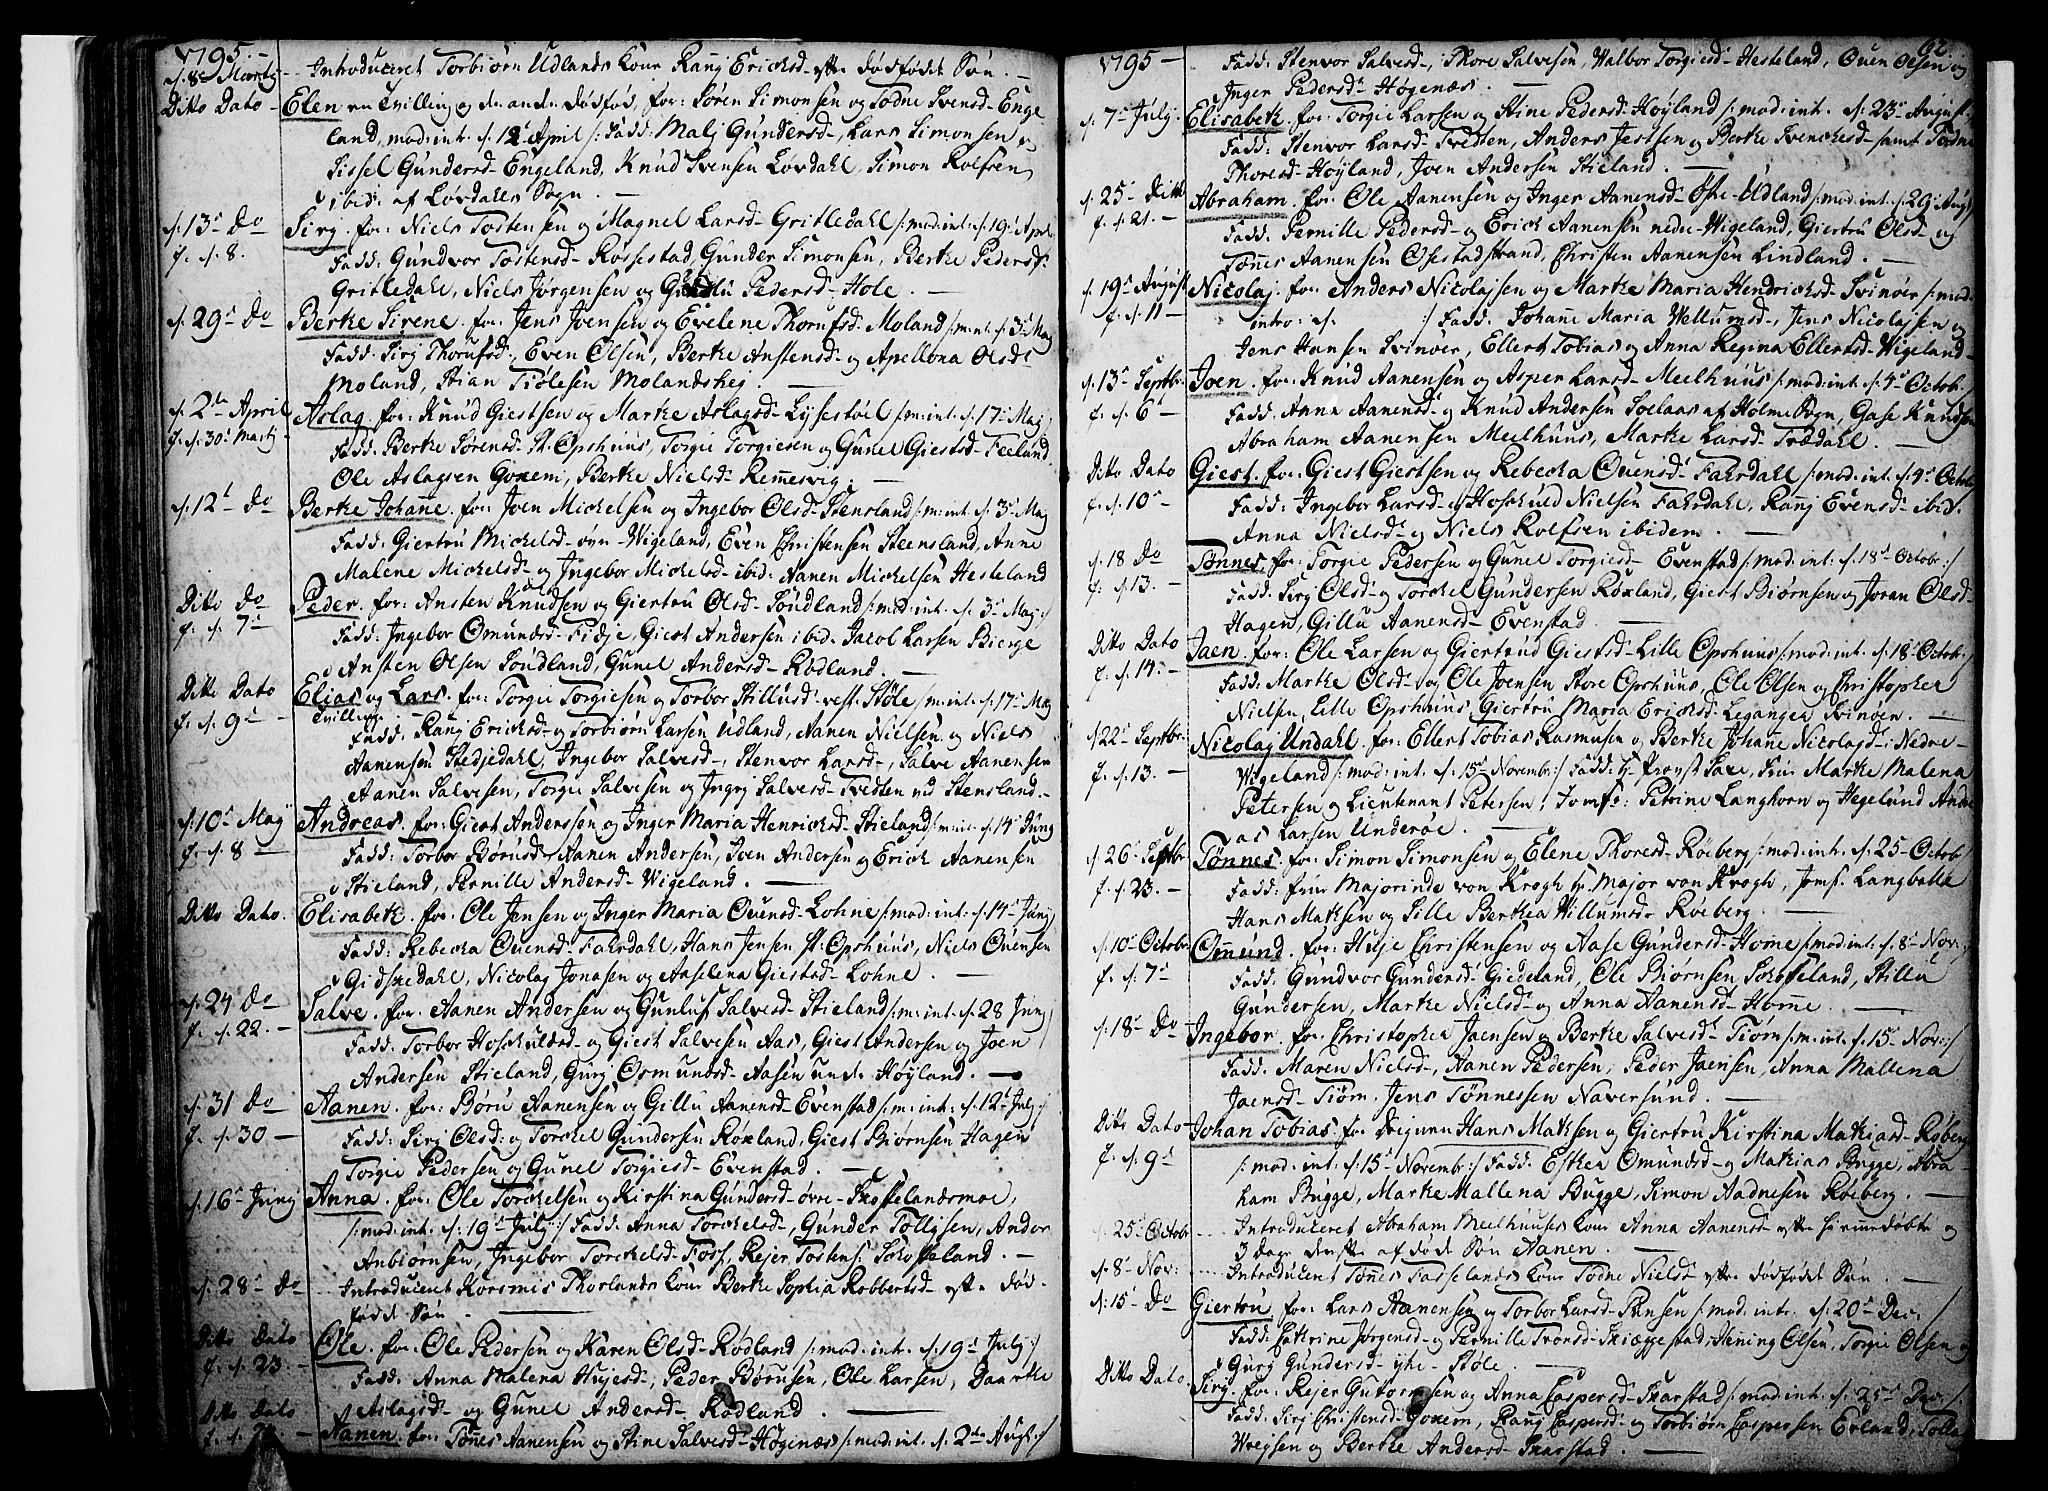 1795.-
d: 8de Martj - Introduceret Torbiörn Udlands Kone Ranj Ericksd- efter dødfødt Søn. -
Ditto Dato - Elen en Tvilling og den anden dødfød, for: Søren Simonsen og Todne Svensd- Enge
land, mod: int. d: 12 April /: Fadd: Malj Gundersd-, Lars Simonsen og
Sissel Gundersd- Engeland, Knud Svensen Lovdahl, Simon Rolfsen
ibid: af Løvdahls Sogn. -
d: 13de Do Sirj. for: Niels Tostensen og Magnel Larsd- Gritledahl /: mod: int: d: 19de Apr:
f. d. 8. Fadd: Gundvor Tostensd- Rossestad, Gunder Simonsen, Berte Pedersd-
Gritledahl, Niels Jørgensen og Pedersd- Hole. -
d: 29de Do Berte Sirene. for: Jens Joensen og Evelene Thorufsd- Moland /: m: int. d: 3de Maj
Fadd: Sirj Thorufsd-, Even Olsen, Berte Anstensd- og Apellona Olsd-
Moland, Stian Tiölesen Molandshej. -
d: 2den April Aslag. for: Knud Giestsen og Marte Aslagsd- Lyssestöl /: m: int. d: 17de Maj
f. d. 30te Martj - Fadd: Berte Sørensd- St. Opshuus, Torgie Torgiesen og Gunel Giestsd- Feelund
Ole Aslagsen Goxem, Berte Nielsd- Remmesvig. -
d: 12te Do Berte Johanne. for: Joen Mickelsen og Ingebor Olsd- Stensland /: m: int. d: 3de Maj
Fadd: Giertru Mickelsd- øvre Wigeland, Even Christensen Steensland, Anne
Malene Mickelsd- og Ingebor Mickelsd- ibid: Aanen Mickelsen Hesteland
Ditto Do Peder. for: Ansten Knudsen og Giertru Olsd- Sundland /: mod: int. d: 3de Maj :/
f. d. 7de Fadd: Ingebor Omundsd- Fidje, Giest Andersen ibid. Jacob Larsen Bierge
Ansten Olsen Sundland, Gunel Andersd- Rödland. -
Ditto Dato Elias og Lars. for: Torgie Torgiesen og Torbor Stillufsd- vest: Støle /: m: int. d: 17de Maj
f. d. 9de - Tvillinge. Fadd: Ranj Ericksd- og Torbiörn Larsen Udland, Aanen Nielsen og Niels
Aanensen Stedjedahl, Ingebor Salvesd-, Stenvor Larsd-, Salve Aanensen
Aanen Salvesen, Torgie Salvesen og Ingrj Salvesd- Tvedten ved Stensland. -
d: 10de Maj Andreas. for: Giest Anderssen og Inger Maria Henricksd- Stieland /: m: int. d: 14de Junj
f. d. 8 - Fadd: Torbor Børusd-, Aanen Andersen, Joen Andersen og Erick Aanensen
Stieland, Pernille Andersd- Wigeland. -
Ditto Dato. Elisabeth. for: Ole Jensen og Inger Maria Ouensd- Lohne /: mod: int: d: 14de Junj
Fadd: Rebecka Ouensd- Fahrdahl, Hans Jensen St: Opshuus, Niels Ouensen
Gidskedahl, Nicolaj Jonasen og Aaselena Giestsd- Lohne. -
d: 24 Do Salve. for: Aanen Andersen og Gunluf Salvesd- Stieland /: m: int. d: 28 Junj
f. d. 22. - Fadd: Torbor Hoskuldsd- og Giest Salvesen Aas, Giest Andersen og Joen
Andersen Stieland, Gurj Osmundsd- Aasen under Høyland. -
d. 31 Do Aanen. for: Børu Aanensen og Gillu Aanensd- Evenstad /: m: int: d. 12te Julj :/
f. d. 30 - Fadd: Sirj Olsd: og Torckel Gundersen Röxland, Giest Biørnsen Hagen
Torgie Pedersen og Gunel Torgiesd- Evenstad. -
d. 16de Junj Anna. for: Ole Torckelsen og Kirstina Gundersd- øvre- Skoffelandsmoe,
/: mod: int. d: 19de Julj :/ Fadd: Anna Torckelsd-, Gunder Tollysen, Andor
Anbiörnsen, Ingebor Torckelsd- Foss, Rejer Tostens: Skoffeland. -
d. 28de Do - Introduceret Korsmis Thorlands Kone Berte Sophia Robbertsd- efter død-
födt Søn -
Ditto Dato Ole. for: Ole Pedersen og Karen Olsd- Rødland /: mod: int. d. 19de Julj :/
f. d. 23. - Fadd: Anna Malena Hujesd-, Peder Børusen, Ole Larsen, Daarthe
Aslagsd- og Gunel Andersd- Rödland. -
Ditto Dato Aanen. for: Tönnes Aanensen og Stine Salvesd- Høgenæs /: mod: int. d. 2den Aug: :/
1795 - Fadd: Stenvor Salvesd-, Thore Salvesen, Walbor Torgiesd- Hesteland, Ouen Olsen og 62.
Inger Pedersd- Høgenæs. -
d. 7de Julj. Elisabeth. for: Torgie Larsen og Stine Pedersd- Höyland /: mod: int. d: 23de August
Fadd: Stenvor Larsd- Tvedten, Anders Jestsen og Berte Svenckesd- samt Todne
Thoresd- Höyland, Joen Andersen Stieland. -
d. 25de Ditto Abraham. for: Ole Aanensen og Inger Aanensd- Öste-Udland /: mod: int. d: 29de Aug:
f. d. 21. - Fadd: Pernille Pedersd- og Erick Aanensen nedre Wigeland, Giertru Olsd- og
Tönnes Aanensen Osestadstrand, Christen Aanensen Lindland. -
d. 19de August Nicolaj. for: Anders Nicolajsen og Marthe Maria Hendricksd- Svinøer /: mod.
f. d. 11 - intro: d. :/ Fadd: Johanne Maria Vellumsd-, Jens Nicolajsen og
Jens Hansen Svinöer, Ellert Tobias og Anna Regina Ellertsd- Wigeland -
d. 13de Septbr. Joen. for: Knud Aanensen og Asper Larsd- Meelhuus /: mod: int. d: 4de Octob:/
f. d. 6te - Fadd: Anna Aanensd- og Knud Andersen Soelaas af Holme Sogn, Gase Knudsen
Abraham Aanensen Meelhuus, Marthe Larsd- Trædahl. -
Ditto Dato Giest. for: Giest Giestsen og Rebecka Ouensd- Fahrdahl /: mod: int. d. 4de Octob:
f. d. 10de - Fadd: Ingebor Larsd- og Hoskuld Nielsen Fahrdahl, Ranj Evensd- ibid.
Anna Nielsd- og Niels Rolfsen ibidem. -
d. 18 Do Tønnes. for: Torgie Pedersen og Gunel Torgiesd- Evenstad /: mod: int. d: 18de Octobr :/
f. d. 13. Fadd: Sirj Olsd- og Torckel Gundersen Röxland, Giest Biørnsen og Joran Olsd-
Hagen, Gillu Aanensd- Evenstad. -
Ditto Dato Jaen. for: Ole Larsen og Giertrud Giestsd- Lille Opshuus /: mod: int. d. 18de Octob:/
f. d. 14. - Fadd: Marthe Olsd- og Ole Joensen Store Opshuus, Ole Olsen og Christopher
Nielsen, Lille Opshuus, Giertru Maria Ericksd- Leganger Svinöen. -
d. 22de Septbr. Nicolaj Undahl. for: Ellert Tobias Rasmusen og Berthe Johanne Nicolajsd- i Nedre-
f. d. 13. - Wigeland /: mod: int. d. 15de Novembr:/ Fadd: Hr. Provst Saxe, Frue Marthe Malena
Petersen og Lieutenant Petersen, Jomfr: Petrine Langhorn og Hegelund Andre
as Larsen Underöe. -
d. 26de Septbr. Tönnes. for: Simon Simonsen og Elene Thoresd- Röeberg /: mod: int. d. 25de Octobr
f. d. 23. - Fadd: Frue Majorinde von Krogh Hr. Major von Krogh, Jomf. Langballe
Hans Mathsen og Sille Berthea Willumsd- Röeberg. -
d: 10de Octobr. Omund. for: Huje Christensen og Aase Gundersd- Home /: mod: int: d: 8de Nov:/
f. d. 7de - Fadd: Gundvor Gundersd- Giedeland, Ole Biørnsen Skoffeland, Stillu
Gundersen, Marthe Nielsd- og Anna Aanensd- Home. -
d. 18de Do Ingebor. for: Christopher Jaensen og Berthe Salvesd- Tiom /: m. int. d. 15de Nov: :/
Fadd: Maren Nielsd-, Aanen Pedersen, Peder Jaensen, Anna Mallena
Jaensd- Tiöm. Jens Tönnessen Naversund. -
Ditto Dato Johan Tobias. for: Hans Mathsen og Giertru Kirstina Mathiasd- Röberg
f. d. 9de /: mod: int: d: 15de Novembr :/ Fadd: Esther Omundsd- og Mathias Bugge, Abra-
ham Bugge, Marthe Mallena Bugge, Simon Aadnesen Röeberg. -
d. 25de Octobr. - Introduceret Abraham Meelhuuses Kone Anna Aanensd- efter hiemmedøbte og
3 dage derefter af døde Søn Aanen. -
d. 8de Nov: - Introduceret Tönnes Fasselands Kone Todne Nielsd- efter dødfødt Søn. -
d: 15de Do Giertru. for: Lars Aanensen og Torbor Larsd- Ransen /: mod: int. d: 20de Dec: :/
Fadd: Cathrine Jørgensd- og Pernille Tronsd- Skiæggestad, Hening Olsen, Torgie Olsen og
Gurj Gundersd- yttre Støle. -
Ditto Dato. Sirj. for: Rejer Gutormsen og Anna Caspersd- Skarstad /: mod: int. d: 25de Dec: /.
Fadd: Sirj Christensd- Goxem, Ranj Caspersd- og Torbiörn Caspersen Evland, Tolla
Wrejsen og Berthe Andersd- Skarstad. -